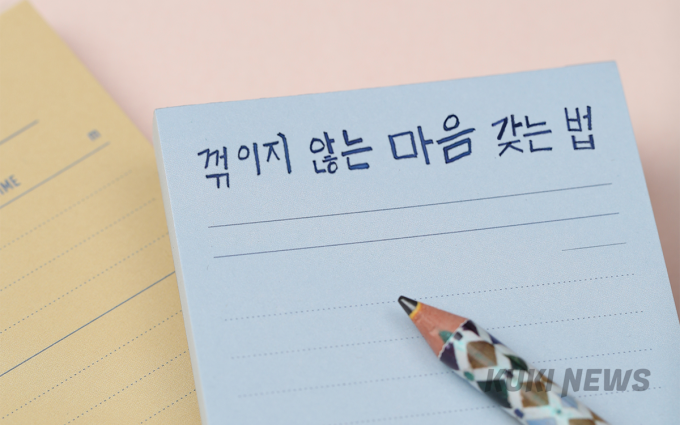 꺾이지 않는 마음 갖는 법
TIME
KUKI NEWS